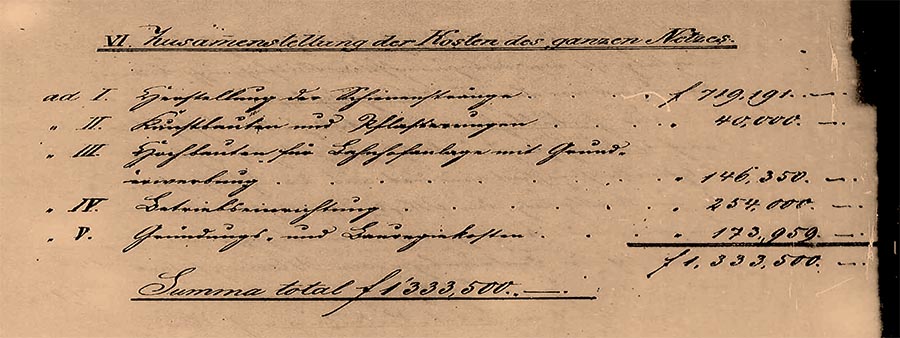 VI. Zusam̅enstellung der Kosten des ganzen Netzes.
ad I. Herstellung der Schienenstränge . . . . f 719,191. —
„ II. Kunstbauten und Pflasterungen . . . . „ 40,000. —
„ III. Hochbauten für Bahnhofanlage mit Grund-
erwerbung . . . . . . . . . „ 146,350. —
„ IV. Betriebseinrichtung . . . . . . . „ 254,000 —
„ V. Gründungs- und Bauregiekosten . . . . „ 173,959. —
f 1,333,500. —
Summa total f 1'333,500. —